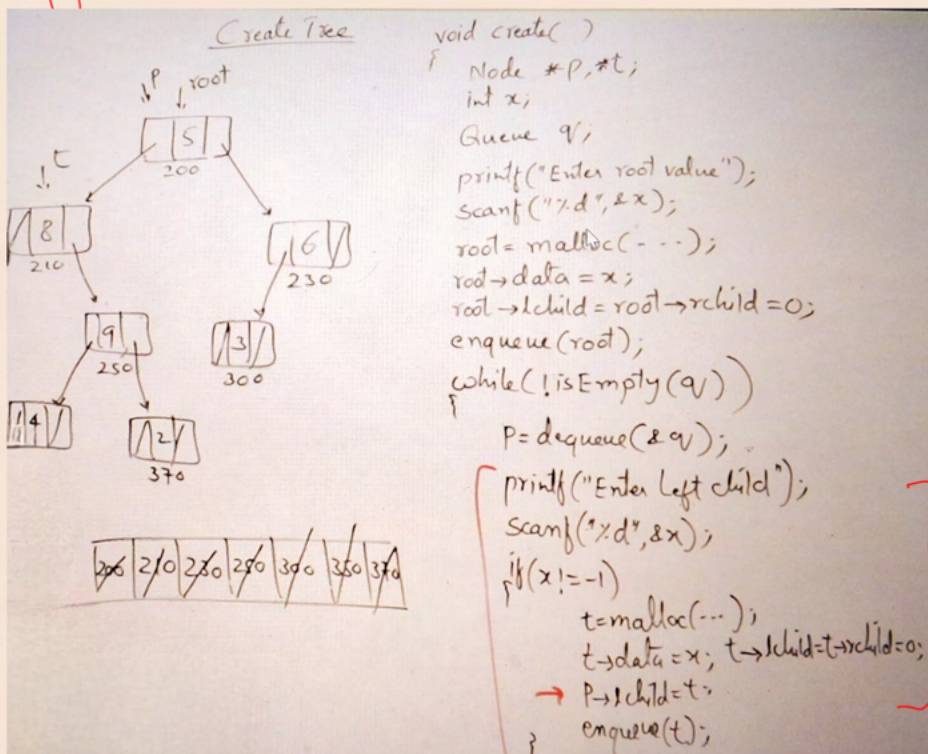 Create Tree
p root
5
200
t
8
210
6
230
9
250
3
300
4
2
370
200 210 230 250 300 350 370
void create( )
{
Node *p,*t;
int x;
Queue q;
printf("Enter root value");
scanf("%d",&x);
root=malloc(---);
root→data=x;
root→lchild=root→rchild=0;
enqueue(root);
while(!isEmpty(q))
{
P=dequeue(&q);
printf("Enter Left child");
scanf("%d",&x);
if(x!=-1)
{
t=malloc(---);
t→data=x; t→lchild=t→rchild=0;
→ P→lchild=t;
enqueue(t);
}